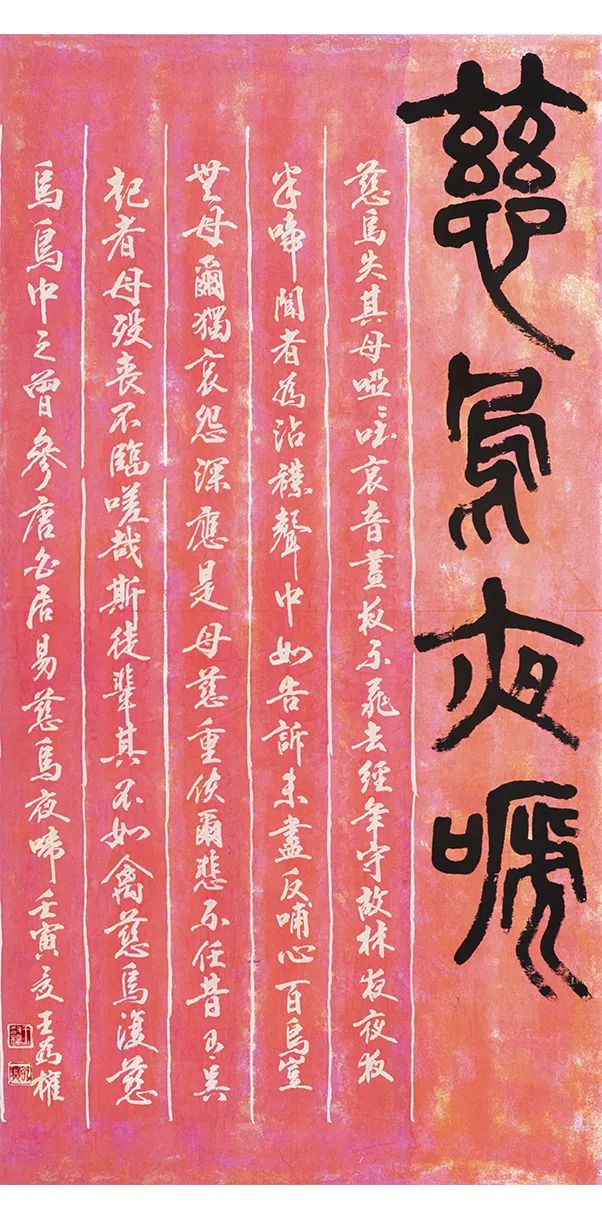 慈烏夜嗁
慈烏失其母啞〻吐哀音晝夜不飛去經年守故林夜夜夜
半啼聞者為沾襟聲中如告訴未盡反哺心百鳥豈
無母爾獨哀怨深應是母慈重使爾悲不任昔有吳
起者母歿喪不臨嗟哉斯徒輩其不如禽慈烏復慈
烏鳥中之曾參唐白居易慈烏夜啼壬寅夏王